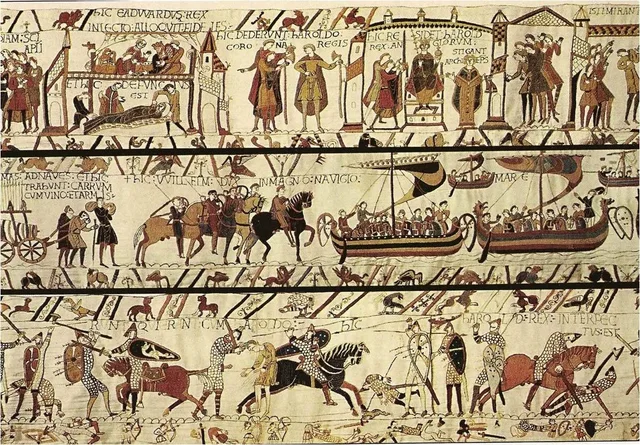 hIC EADVVARDVS: REX
IN LECTO: ALLOQVIT: FIDELES:
ET hIC: DEFVNCTVS
EST
hIC DEDERVNT: hAROLDO:
CORONA REGIS
hIC RE SIDET: hAROLD
REX: ANGLORVM:
STIGANT
ARChIEPS
ISTI MIRANT
AD NAVES: ET hIC
TRAhVNT: CARRVM
CVM VINO: ET ARMIS:
hIC: VVILLELM: DVX IN MAGNO: NAVIGIO:
MARE
hIC
hAROLD: REX: INTERFEC
TVS: EST